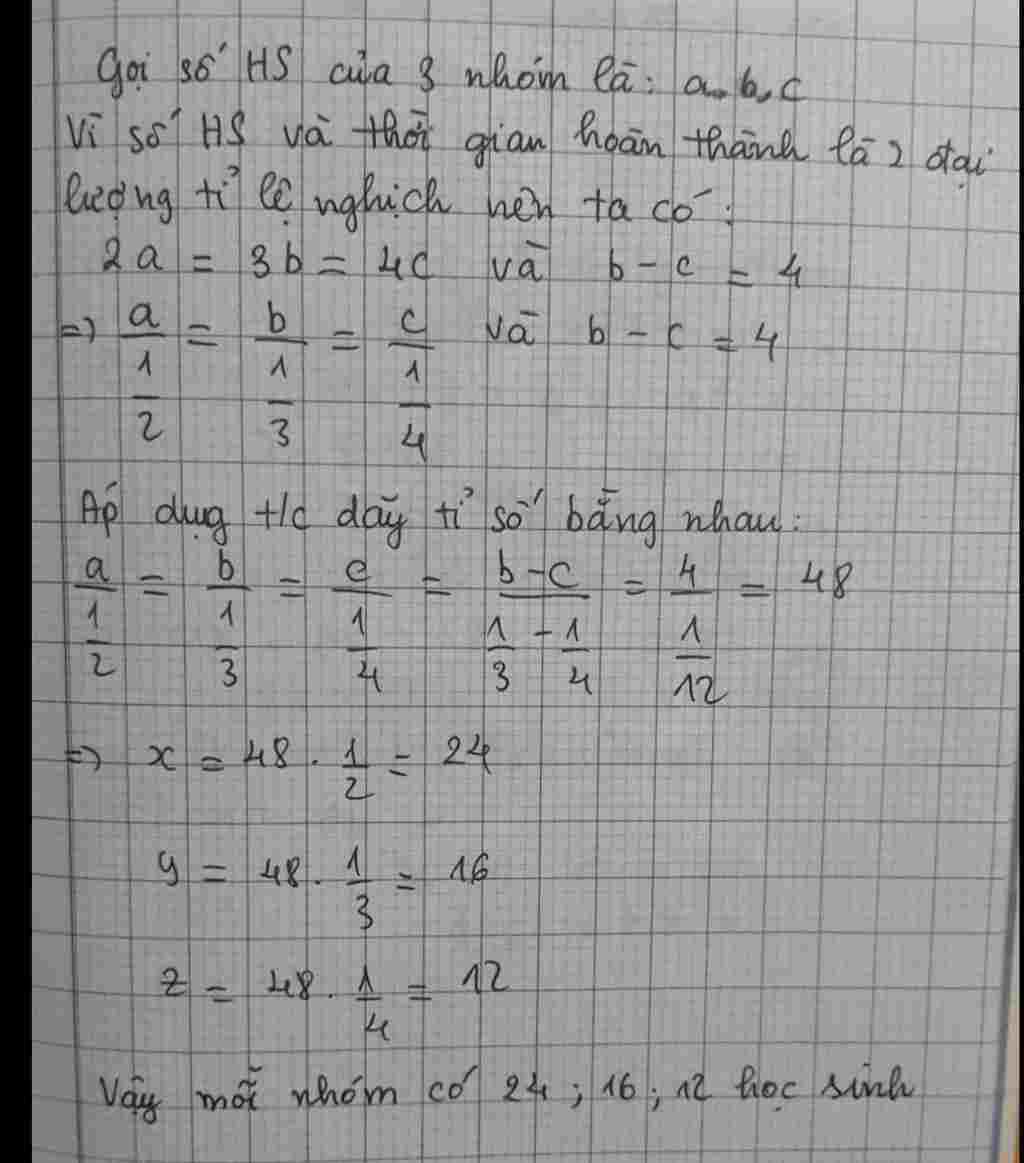 Gọi số HS của 3 nhóm là: a, b, c
Vì số HS và thời gian hoàn thành là 2 đại
lượng tỉ lệ nghịch nên ta có:
2a = 3b = 4c và b - c = 4
=> a/(1/2) = b/(1/3) = c/(1/4) và b - c = 4
Áp dụg t/c dãy tỉ số bằng nhau:
a/(1/2) = b/(1/3) = c/(1/4) = (b-c)/(1/3 - 1/4) = 4/(1/12) = 48
=> x = 48 . 1/2 = 24
y = 48 . 1/3 = 16
z = 48 . 1/4 = 12
Vậy mỗi nhóm có 24; 16; 12 học sinh